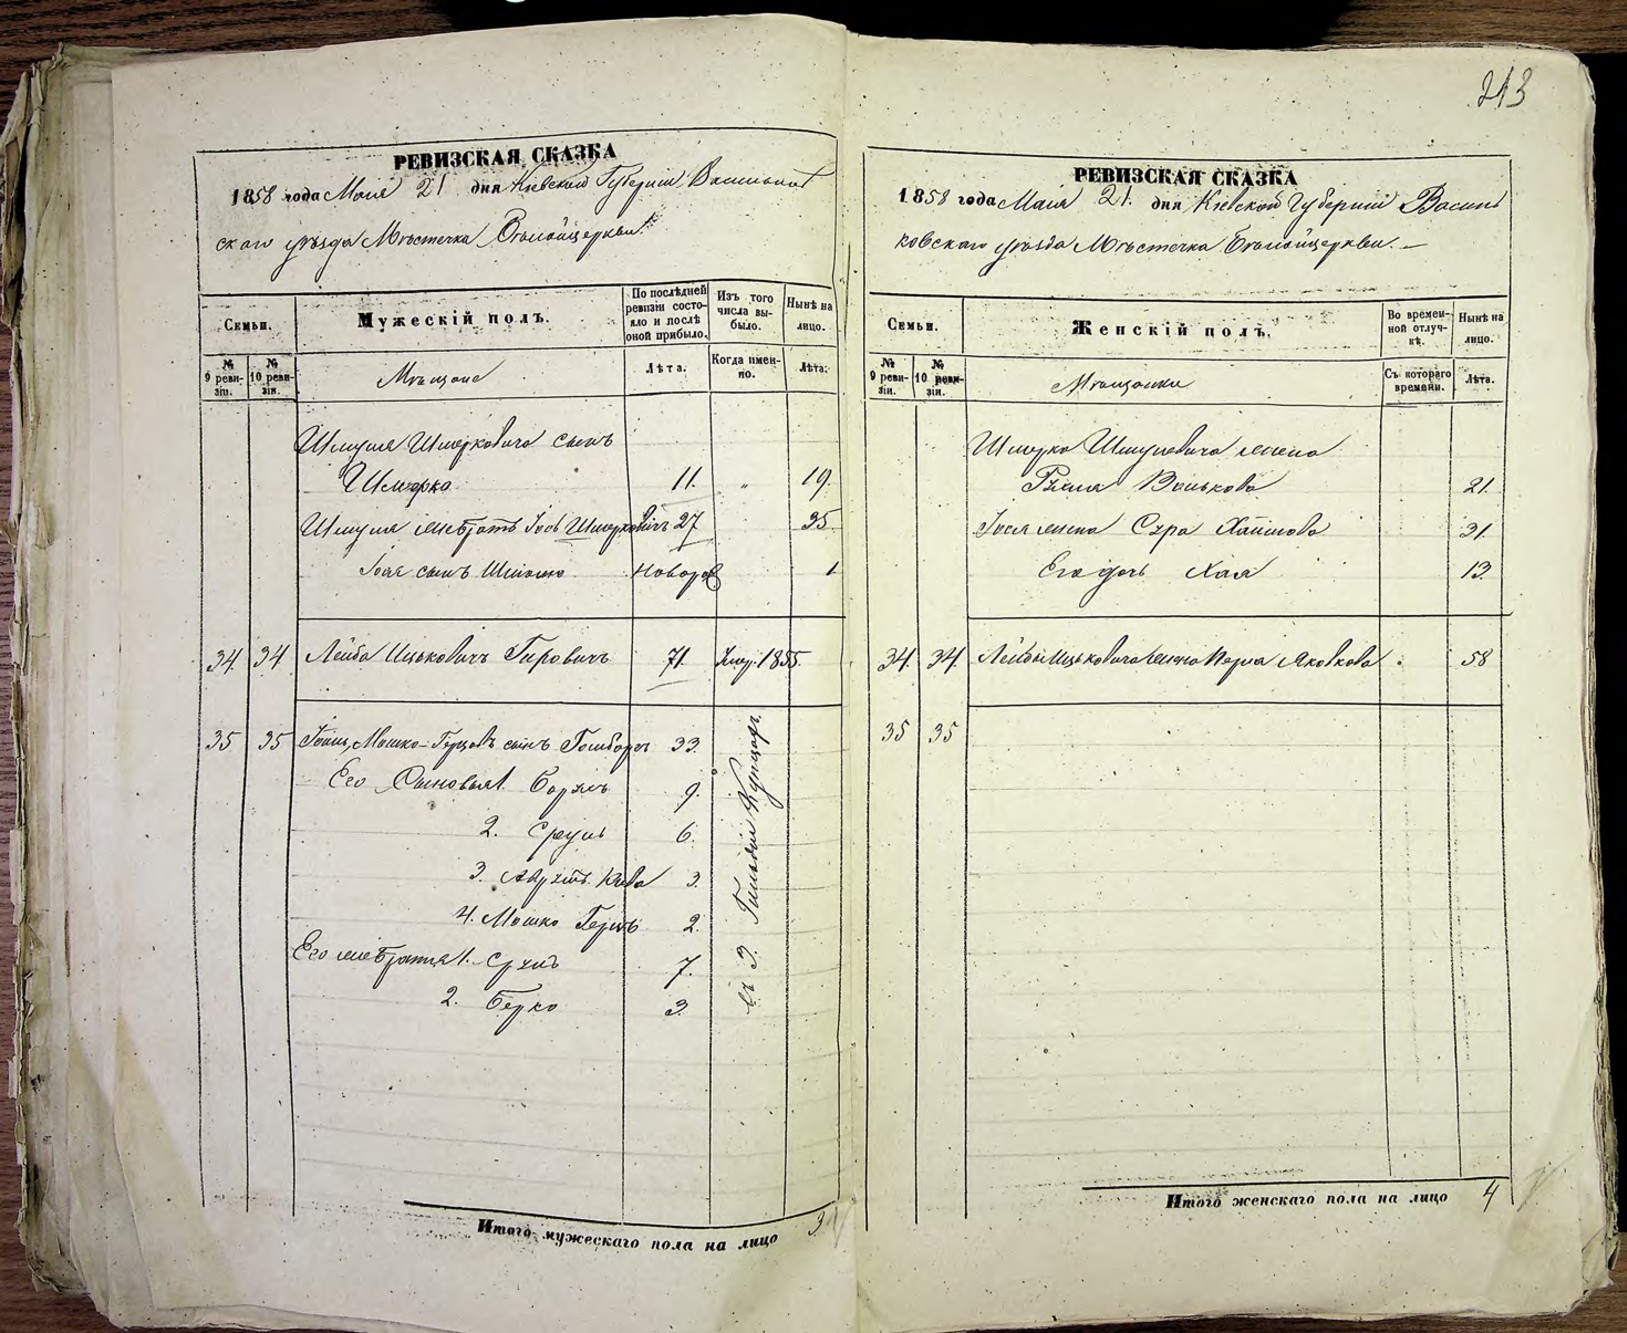 213
РЕВИЗСКАЯ СКАЗКА
1858 года Мая 21 дня Кіевской Губерніи Васильков
скаго уѣзда Мѣстечка Бѣлойцеркви
Семьи.
Мужескій полъ.
По послѣдней ревизіи состояло и послѣ оной прибыло.
Изъ того числа выбыло.
Нынѣ на лицо.
№ 9 ревизіи.
№ 10 ревизіи.
Мѣщане
Лѣта.
Когда именно.
Лѣта.
Шмуля Шмерковича сынъ
Шмерко 11. " 19.
Шмуля Iось Шмерковичъ 27 35.
Iося сынъ Новорож 1
34 34 Лейба Ицьковичъ 71. Умер. 1855.
35 35 Мошко-Герцовъ сынъ 33.
Его Сыновья 1. 9.
2. Сруль 6.
3. 3.
4. Мошко Герцъ 2.
Его братья 1. 7.
2. Берко 3.
въ 3. Гильдіи Купцахъ
Итого мужескаго пола на лицо 3
РЕВИЗСКАЯ СКАЗКА
1858 года Мая 21. дня Кіевской Губерніи Василь
ковскаго уѣзда Мѣстечка Бѣлойцеркви. —
Семьи.
Женскій полъ.
Во временной отлучкѣ.
Нынѣ на лицо.
№ 9 ревизіи.
№ 10 ревизіи.
Мѣщанки
Съ котораго времени.
Лѣта.
Шмерко Шмулевича жена
Волькова 21.
Iося жена Сура Хаимова 31.
Его дочь Хая 13.
34. 34. Лейбы Ицьковича жена Перла Яковкова 58
35 35
Итого женскаго пола на лицо 4